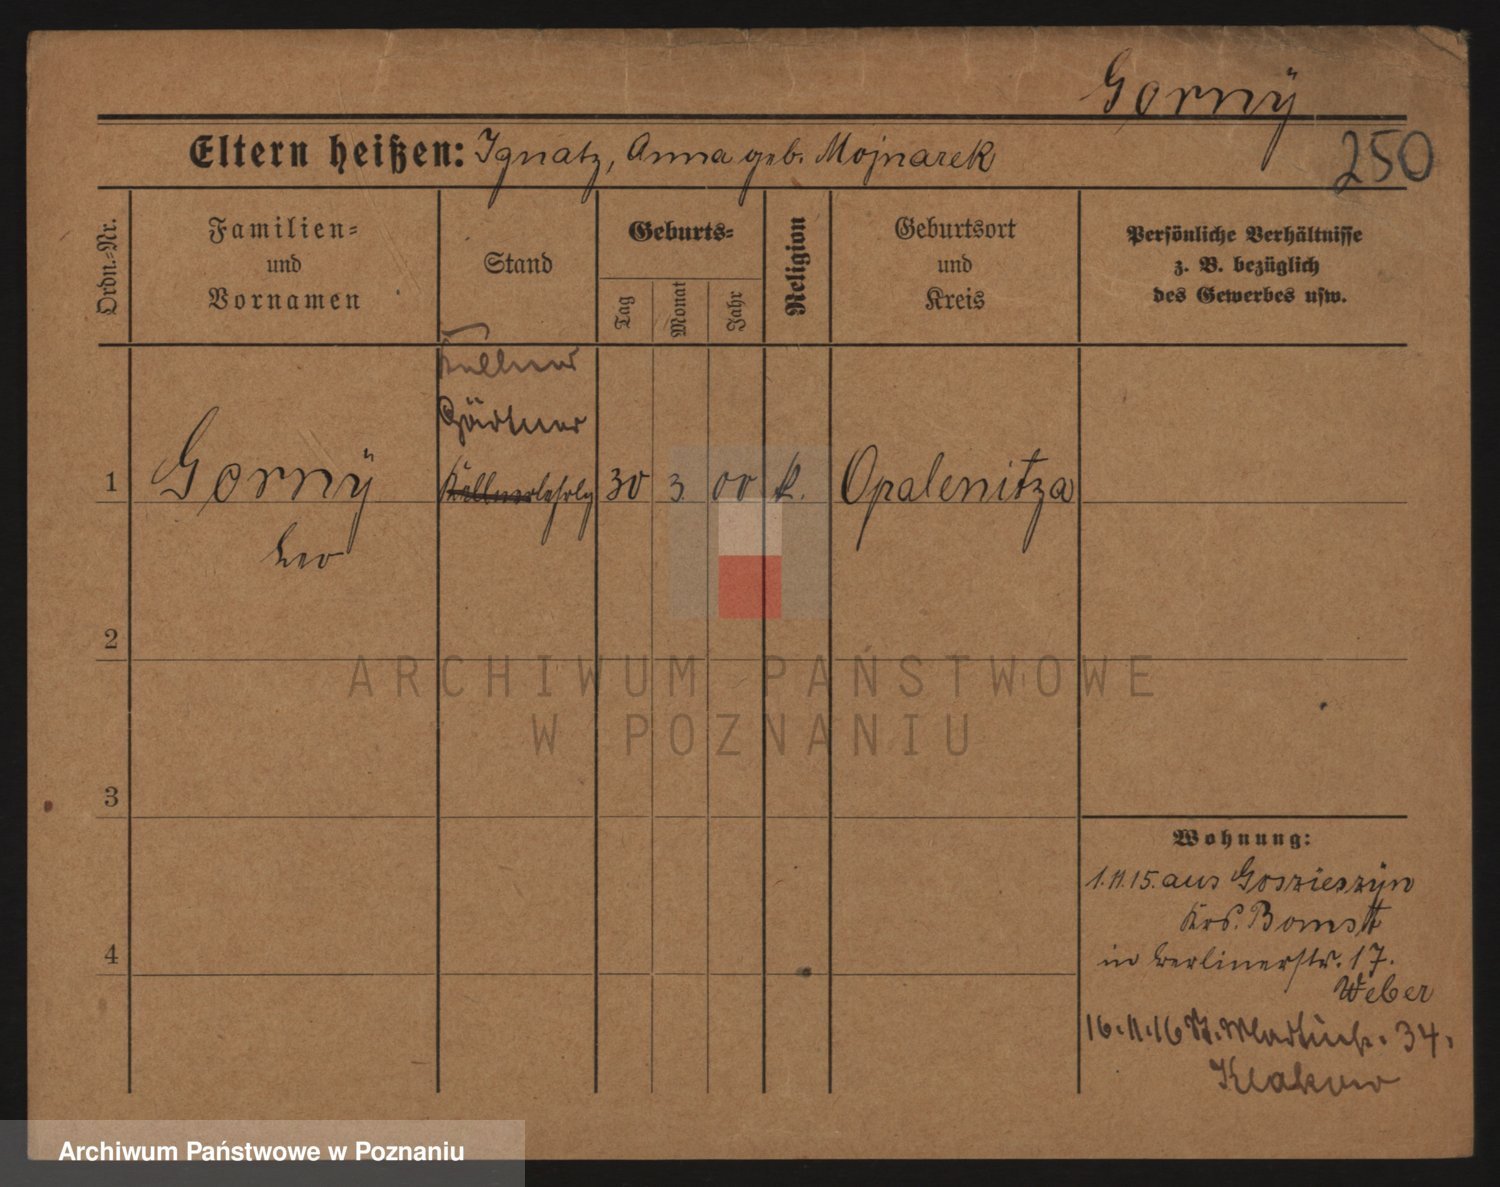 Gorny
250
Eltern heißen: Ignatz, Anna geb. Mojnarek
Ordn.-Nr.
Familien-
und
Vornamen
Stand
Geburts-
Tag
Monat
Jahr
Religion
Geburtsort
und
Kreis
Persönliche Verhältnisse
z. B. bezüglich
des Gewerbes usw.
Kellner
Gärtner
1 Gorny Kellnerlehrlg 30 3 00 k. Opalenitza
Leo
2
3
4
Wohnung:
1.11.15. aus Goszieszyn
Krs. Bomst
in Berlinerstr. 17.
Weber
16.11.16 34.
ARCHIWUM PAŃSTWOWE
W POZNANIU
Archiwum Państwowe w Poznaniu